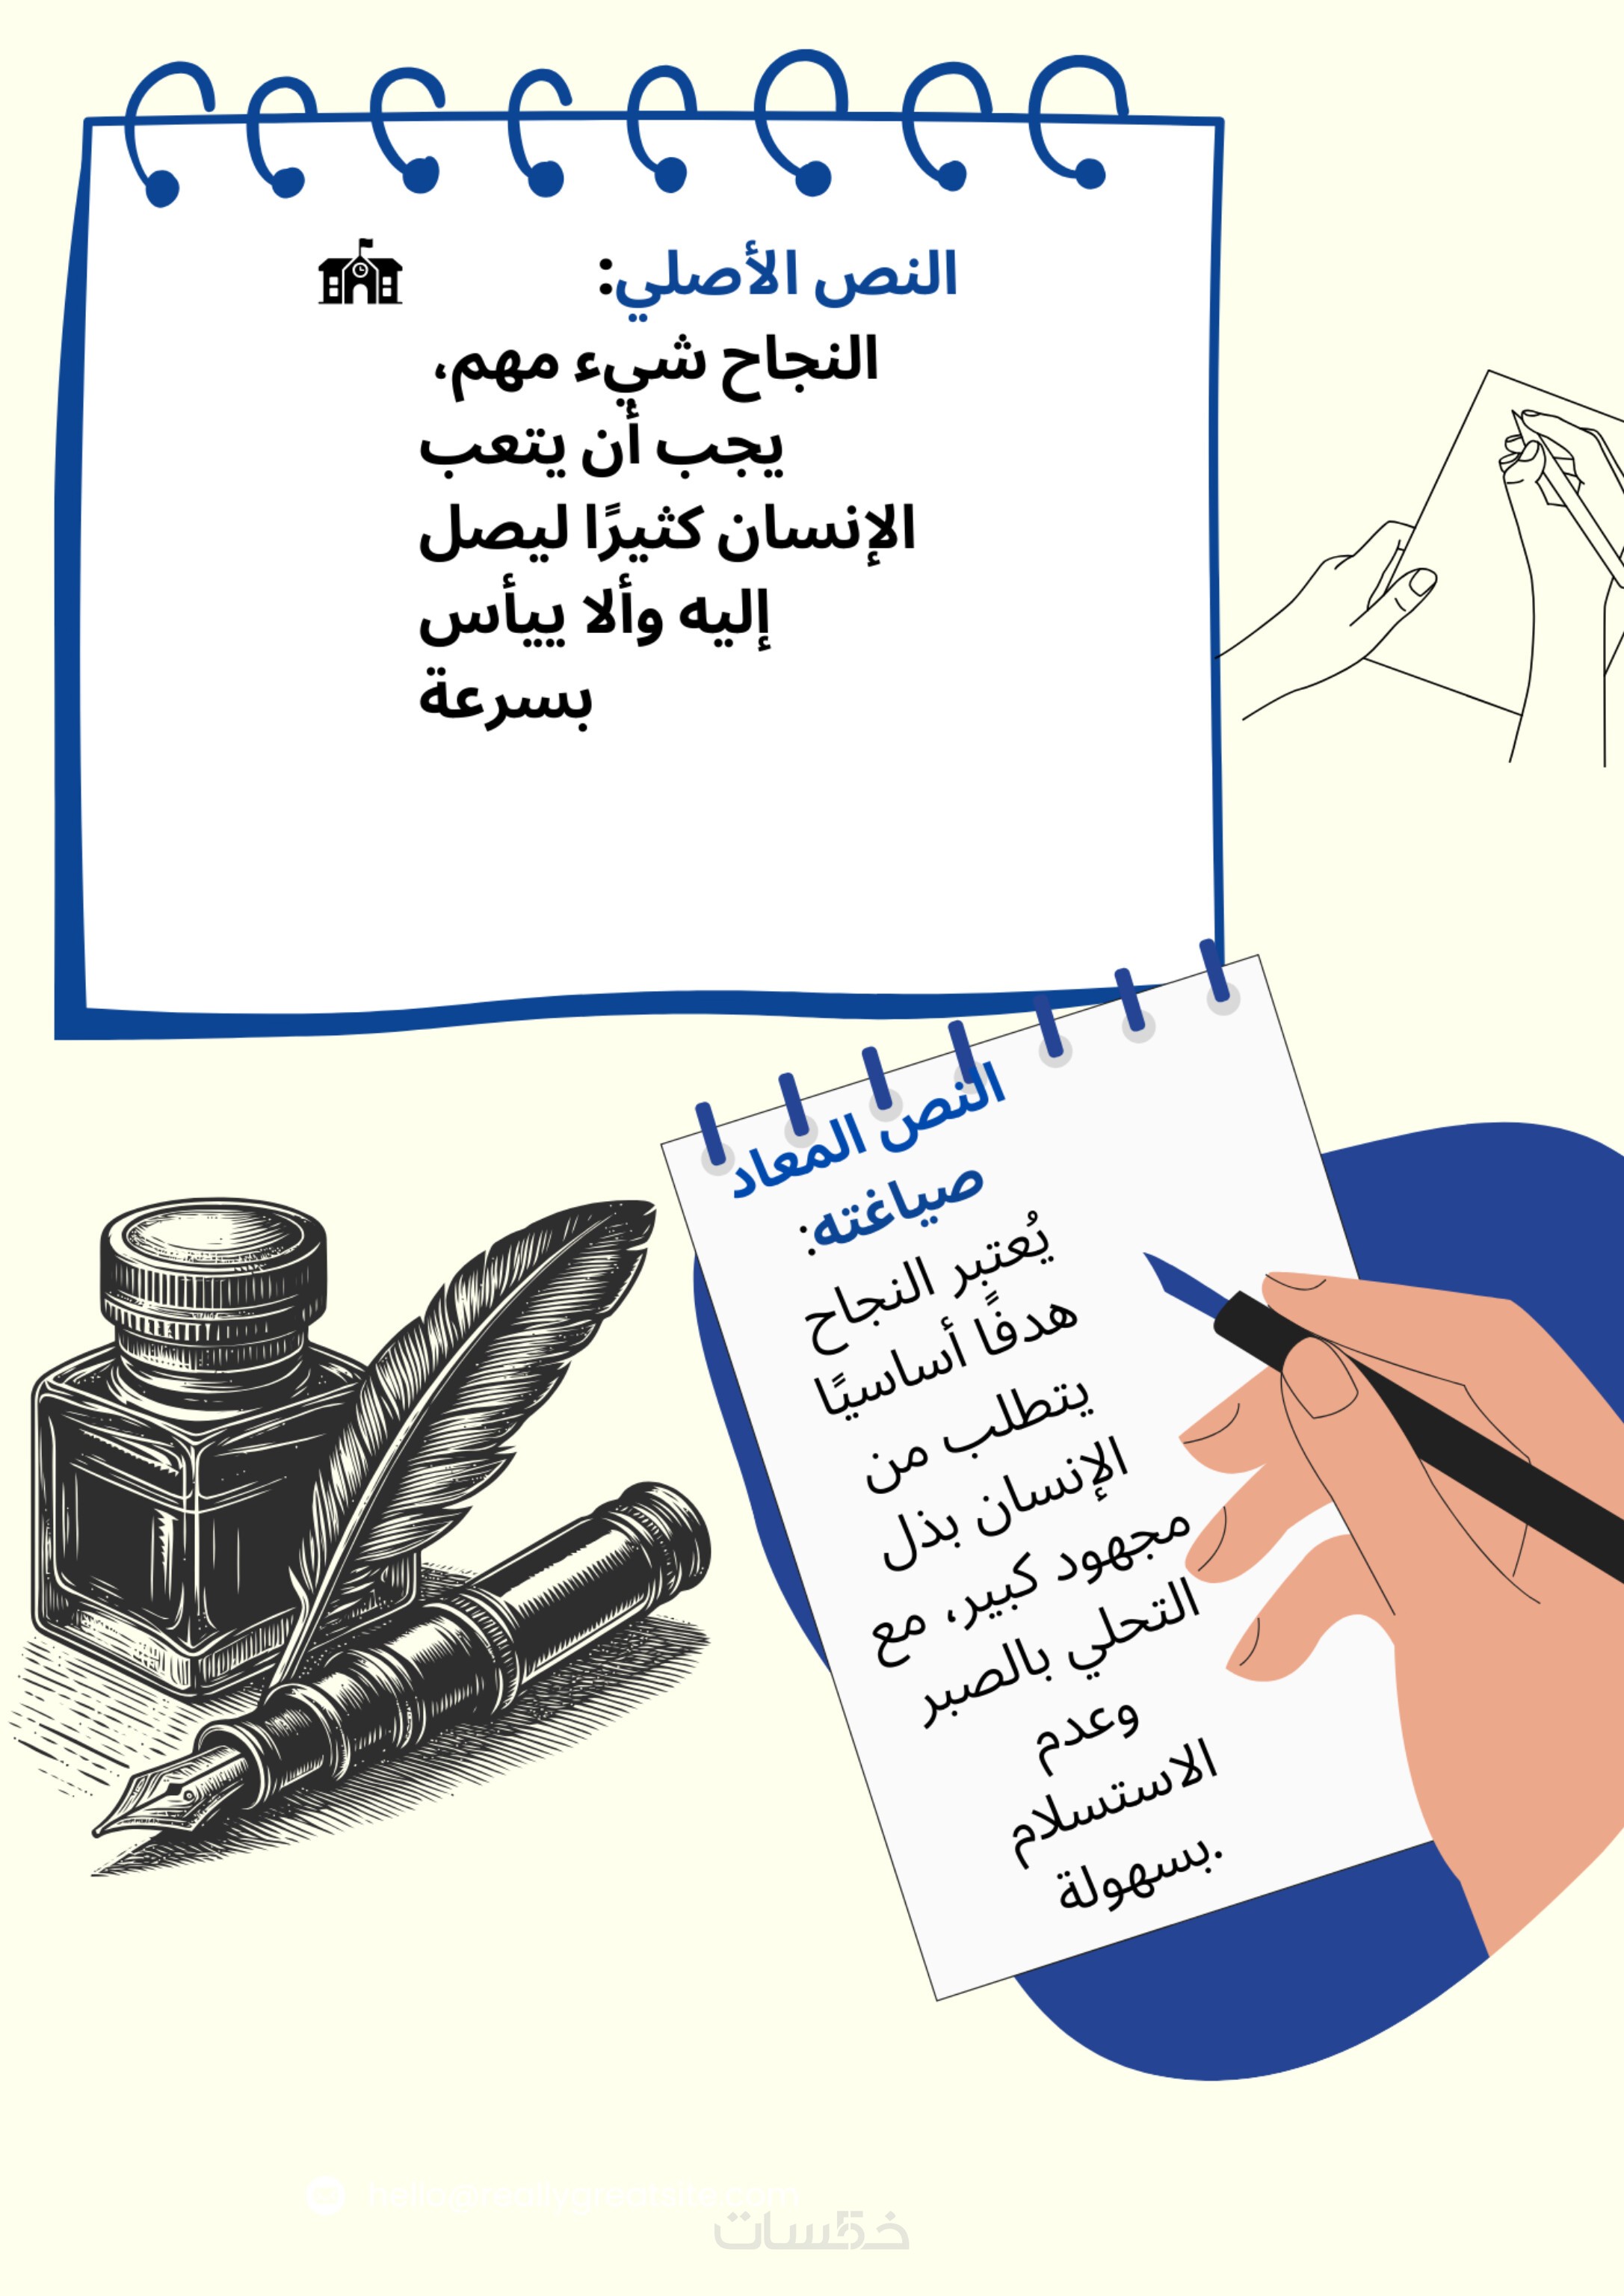 النص الأصلي:
النجاح شيء مهم،
يجب أن يتعب
الإنسان كثيرًا ليصل
إليه وألا ييأس
بسرعة
النص المعاد
صياغته:
يُعتبر النجاح
هدفًا أساسيًا
يتطلب من
الإنسان بذل
مجهود كبير، مع
التحلي بالصبر
وعدم
الاستسلام
.بسهولة
hello@reallygreatsite.com
خمسات